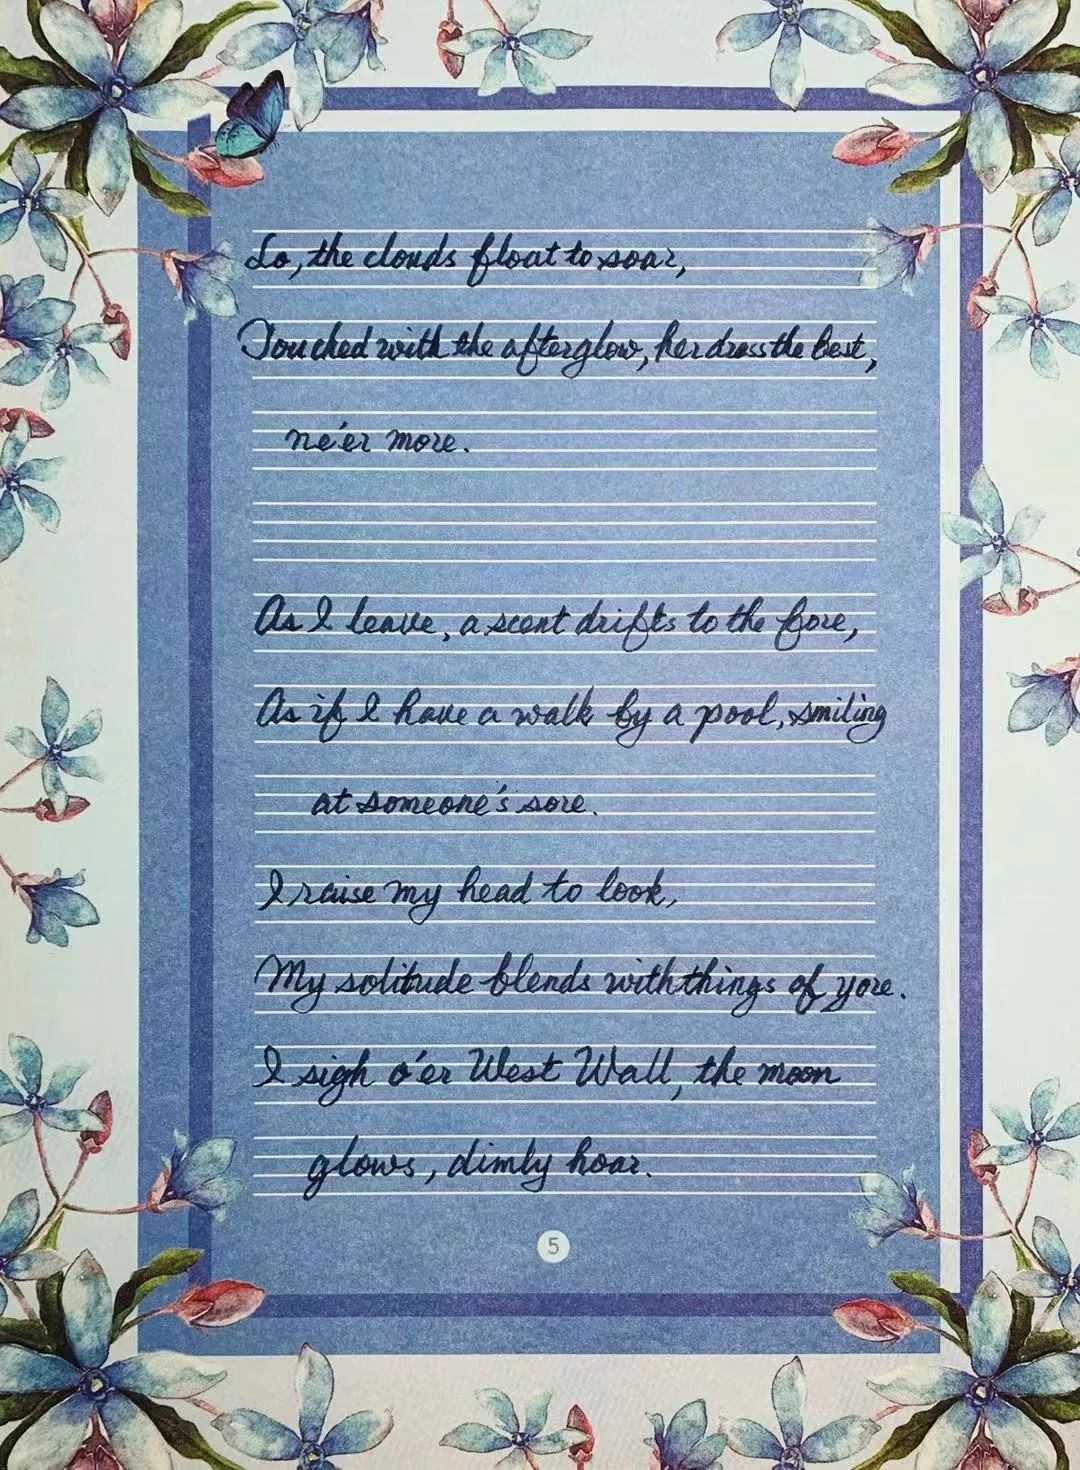 Lo, the clouds float to soar,
Touched with the afterglow, her dress the best,
ne'er more.
As I leave, a scent drifts to the fore,
As if I have a walk by a pool, smiling
at someone's sore.
I raise my head to look,
My solitude blends with things of yore.
I sigh o'er West Wall, the moon
glows, dimly hoar.
5